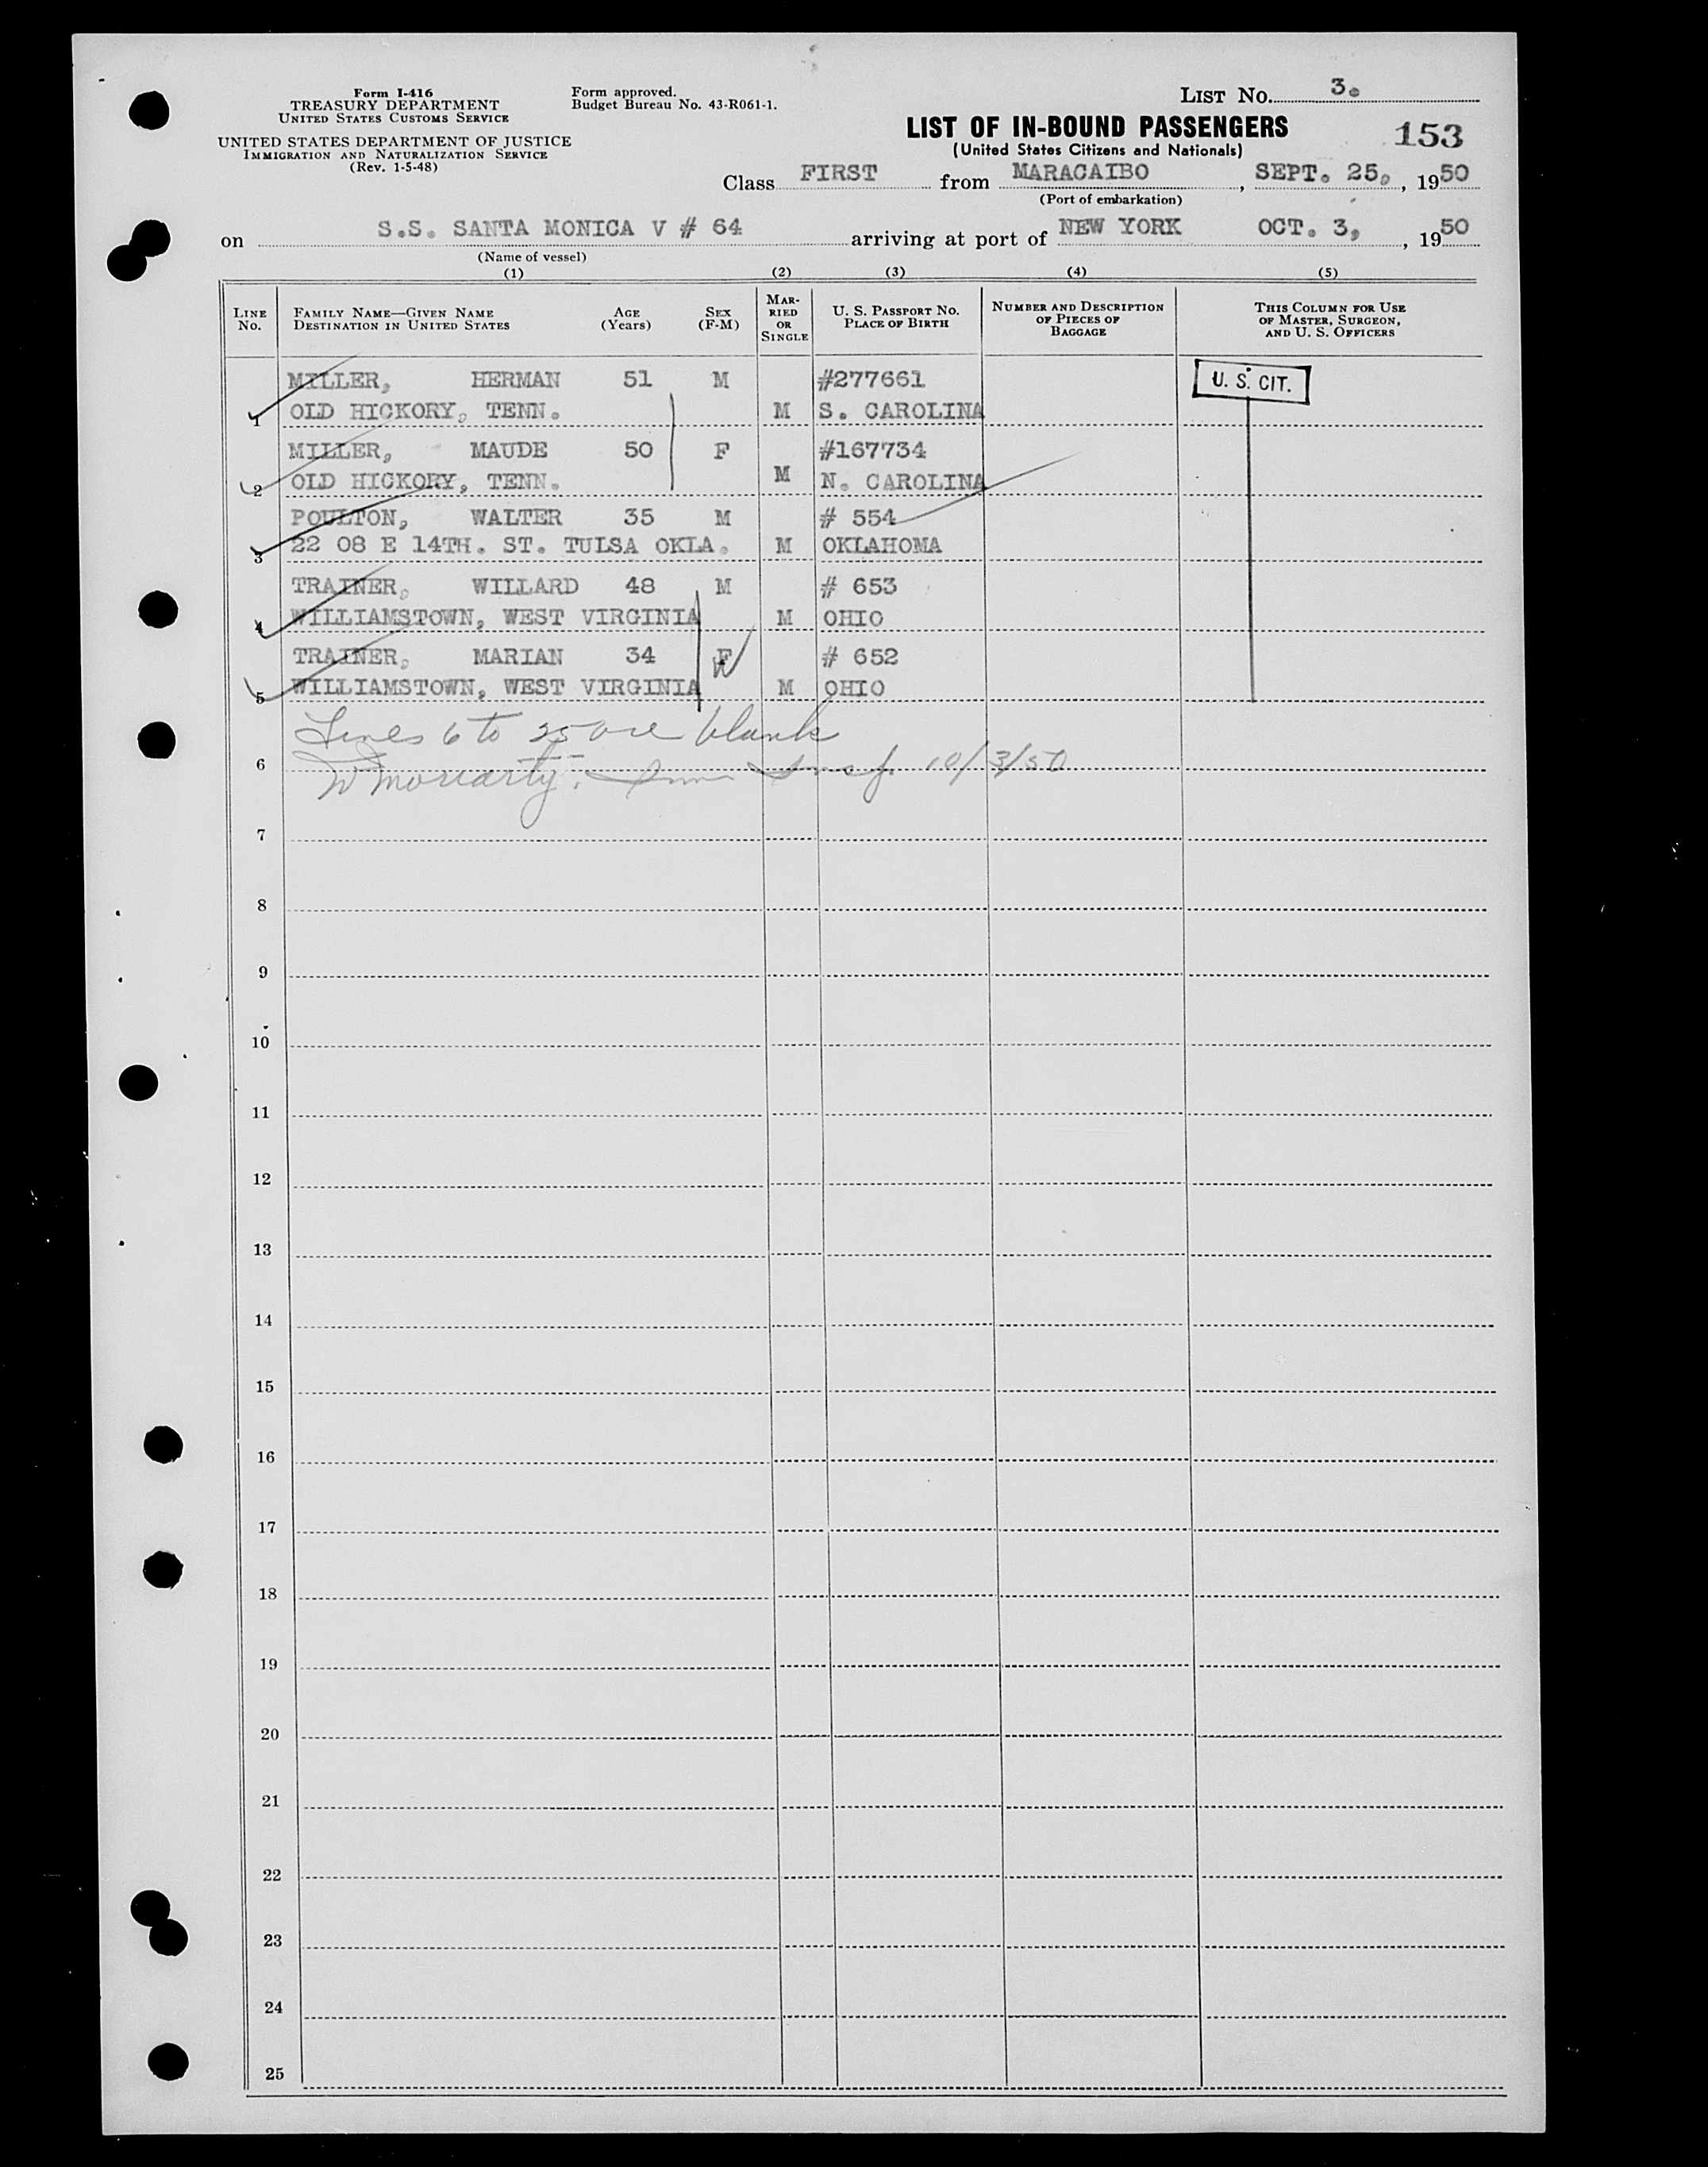 Form I-416
TREASURY DEPARTMENT
UNITED STATES CUSTOMS SERVICE
UNITED STATES DEPARTMENT OF JUSTICE
IMMIGRATION AND NATURALIZATION SERVICE
(Rev. 1-5-48)
Form approved.
Budget Bureau No. 43-R061-1.
LIST No. 3.
LIST OF IN-BOUND PASSENGERS
153
(United States Citizens and Nationals)
Class FIRST from MARACAIBO, SEPT. 25, , 1950
(Port of embarkation)
on S.S. SANTA MONICA V # 64 arriving at port of NEW YORK OCT. 3, , 1950
(Name of vessel)
(1) (2) (3) (4) (5)
LINE No. FAMILY NAME—GIVEN NAME DESTINATION IN UNITED STATES AGE (Years) SEX (F-M) MARRIED OR SINGLE U. S. PASSPORT NO. PLACE OF BIRTH NUMBER AND DESCRIPTION OF PIECES OF BAGGAGE THIS COLUMN FOR USE OF MASTER, SURGEON, AND U. S. OFFICERS
MILLER, HERMAN 51 M #277661 U. S. CIT.
1 OLD HICKORY, TENN. M S. CAROLINA
MILLER, MAUDE 50 F #167734
2 OLD HICKORY, TENN. M N. CAROLINA
POULTON, WALTER 35 M # 554
3 22 08 E 14TH. ST. TULSA OKLA. M OKLAHOMA
TRAINER, WILLARD 48 M # 653
4 WILLIAMSTOWN, WEST VIRGINIA M OHIO
TRAINER, MARIAN 34 F W # 652
5 WILLIAMSTOWN, WEST VIRGINIA M OHIO
Lines 6 to 25 are blank
6 W Moriarty. Imm Insp. 10/3/50
7
8
9
10
11
12
13
14
15
16
17
18
19
20
21
22
23
24
25